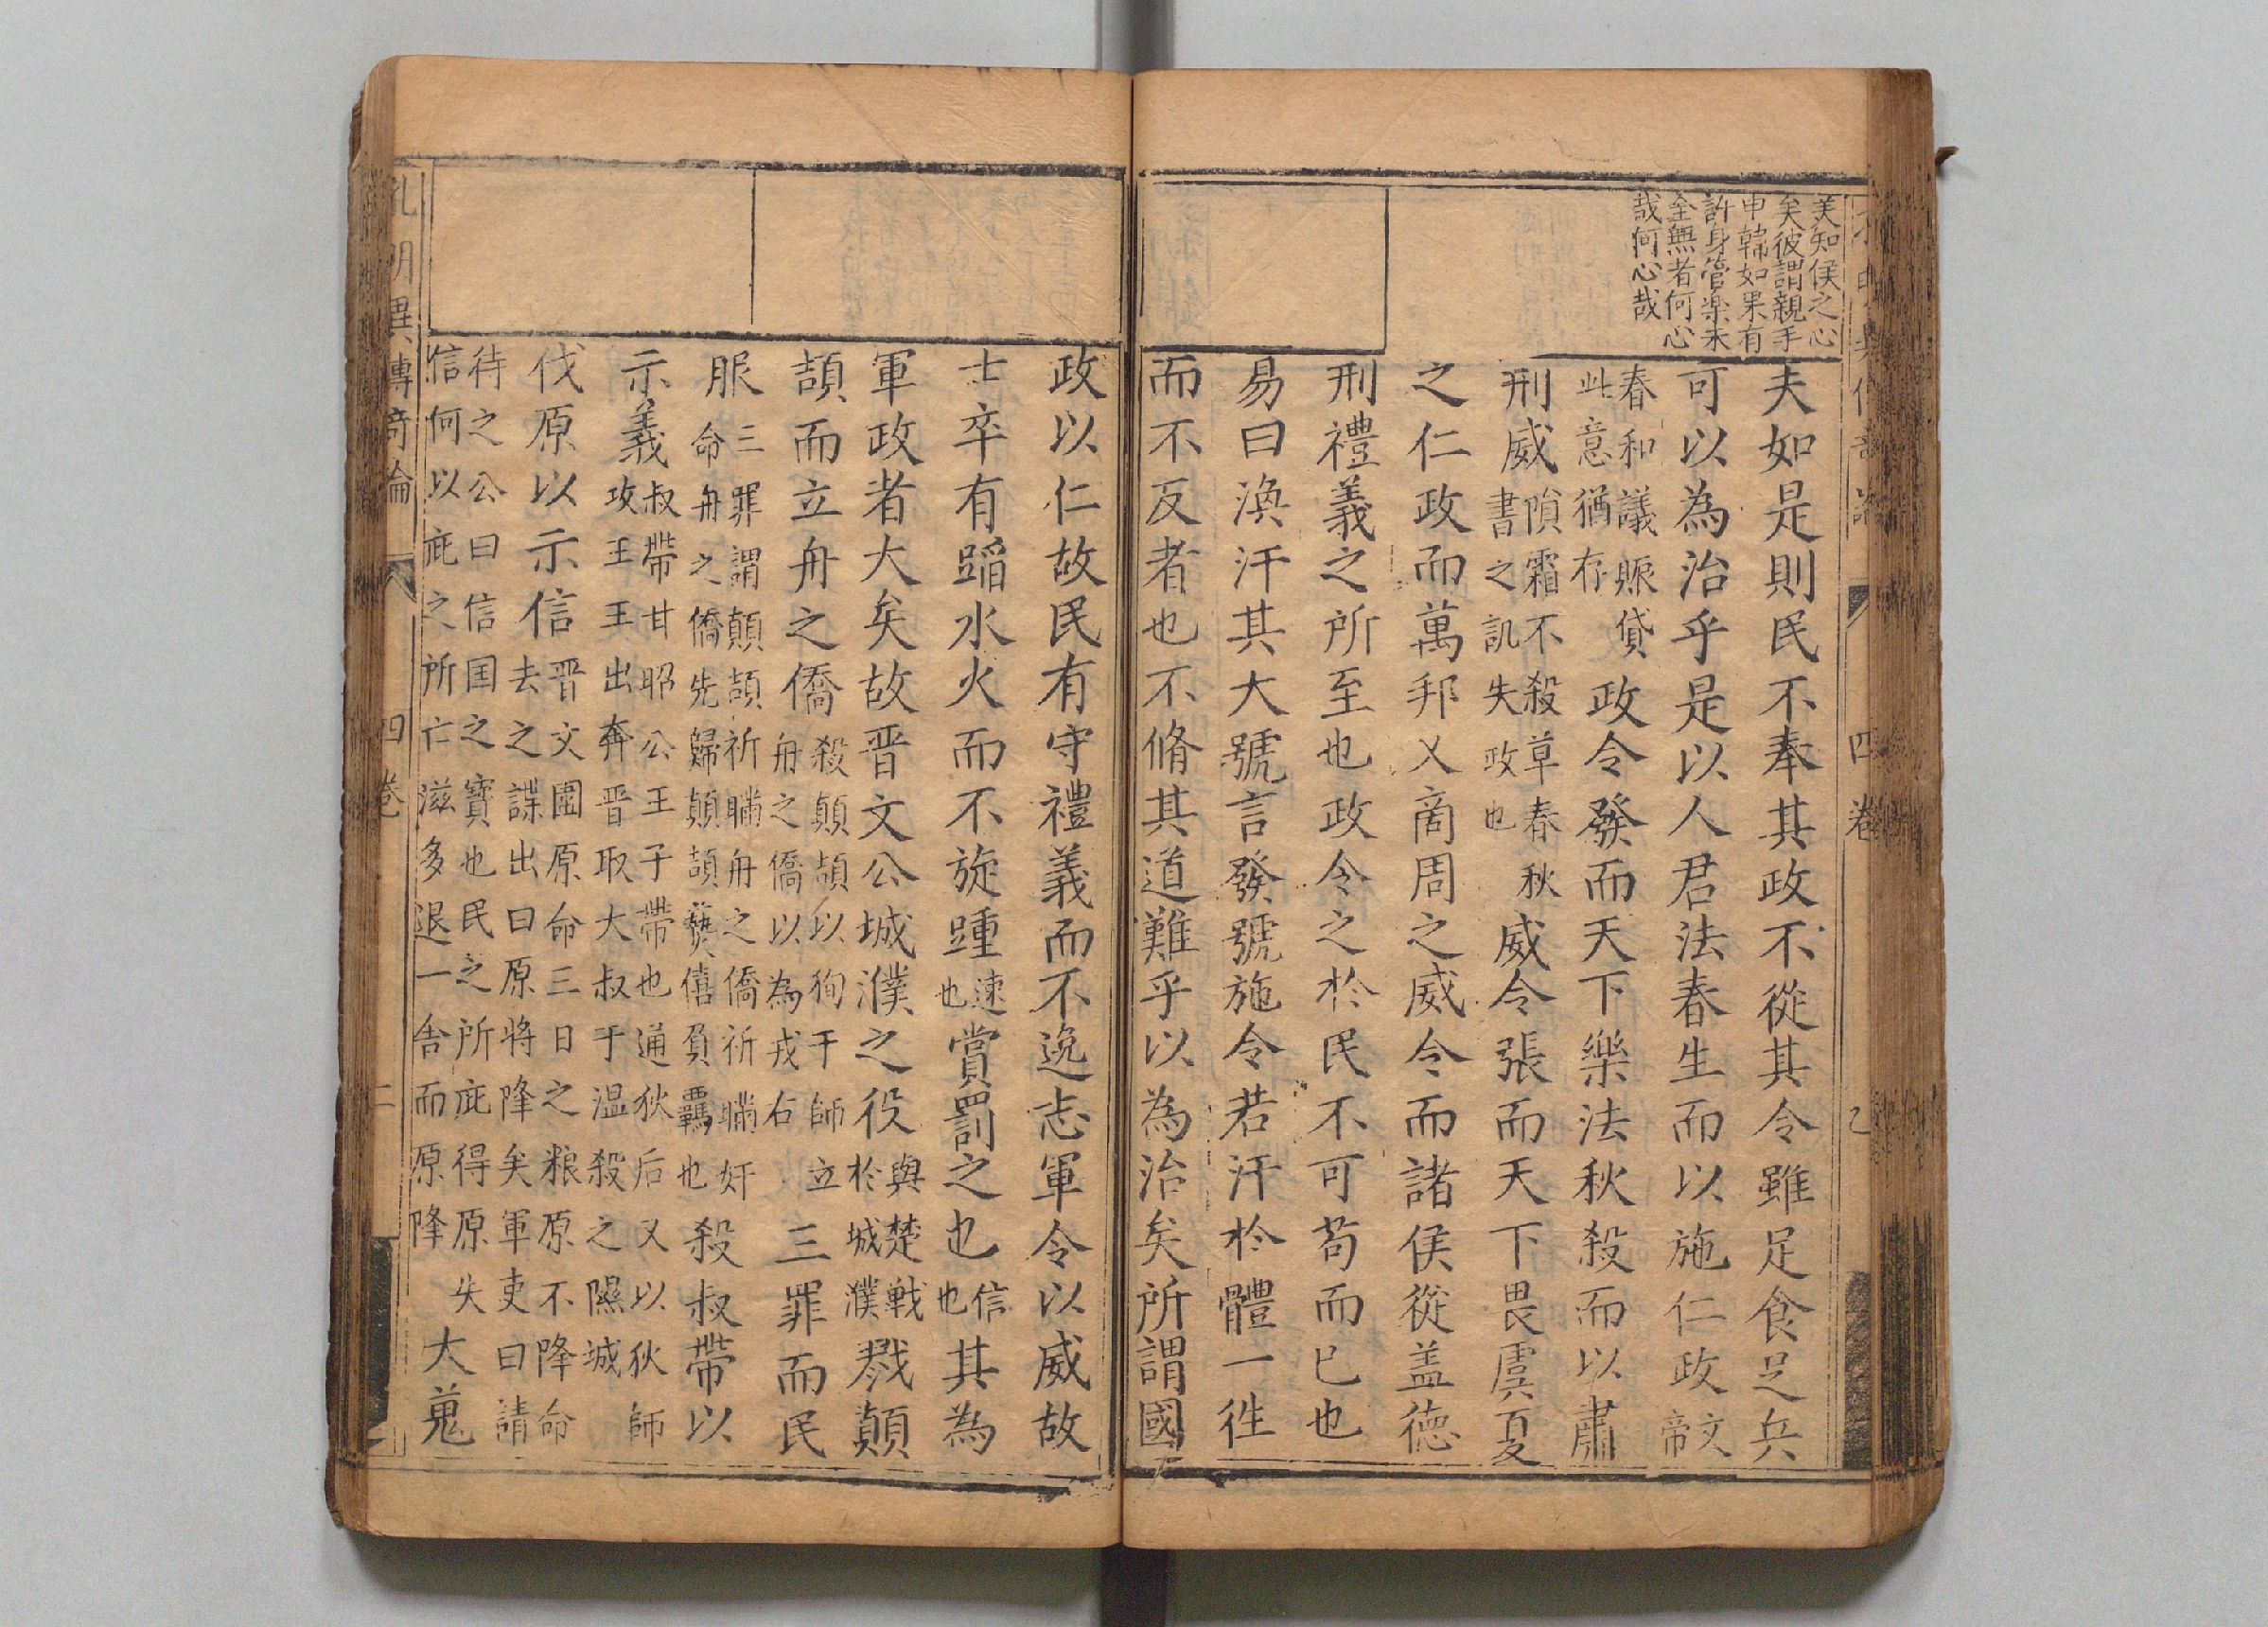 美知侯之心
矣彼謂親手
申韓如果有
許身管樂未
全無者何心
哉何心哉
四卷
夫如是則民不奉其政不從其令雖足食足兵
可以為治乎是以人君法春生而以施仁政文帝
春和議賑貸此意猶存政令發而天下樂法秋殺而以肅
刑威隕霜不殺草春秋書之訊失政也威令張而天下畏虞夏
之仁政而萬邦乂商周之威令而諸侯從盖德
刑禮義之所至也政令之於民不可苟而已也
易曰渙汗其大號言發號施令若汗於體一徃
而不反者也不脩其道難乎以為治矣所謂國
政以仁故民有守禮義而不逸志軍令以威故
士卒有蹈水火而不旋踵速也賞罰之也信也其為
軍政者大矣故晋文公城濮之役與楚戰於城濮戮顛
頡而立舟之僑殺顛頡以狥于師立舟之僑以為戎右三罪而民
服三罪謂顛頡祈瞞舟之僑祈瞞奸命舟之僑先歸顛頡爇僖負羈也殺叔帶以
示義叔帶甘昭公王子帶也通狄后又以狄師攻王王出奔晋取大叔于温殺之隰城
伐原以示信晋文圍原命三日之粮原不降命去之諜出曰原将降矣軍吏曰請
待之公曰信国之寶也民之所庇得原失信何以庇之所亡滋多退一舍而原降大蒐
孔明異傳奇論
四卷
二